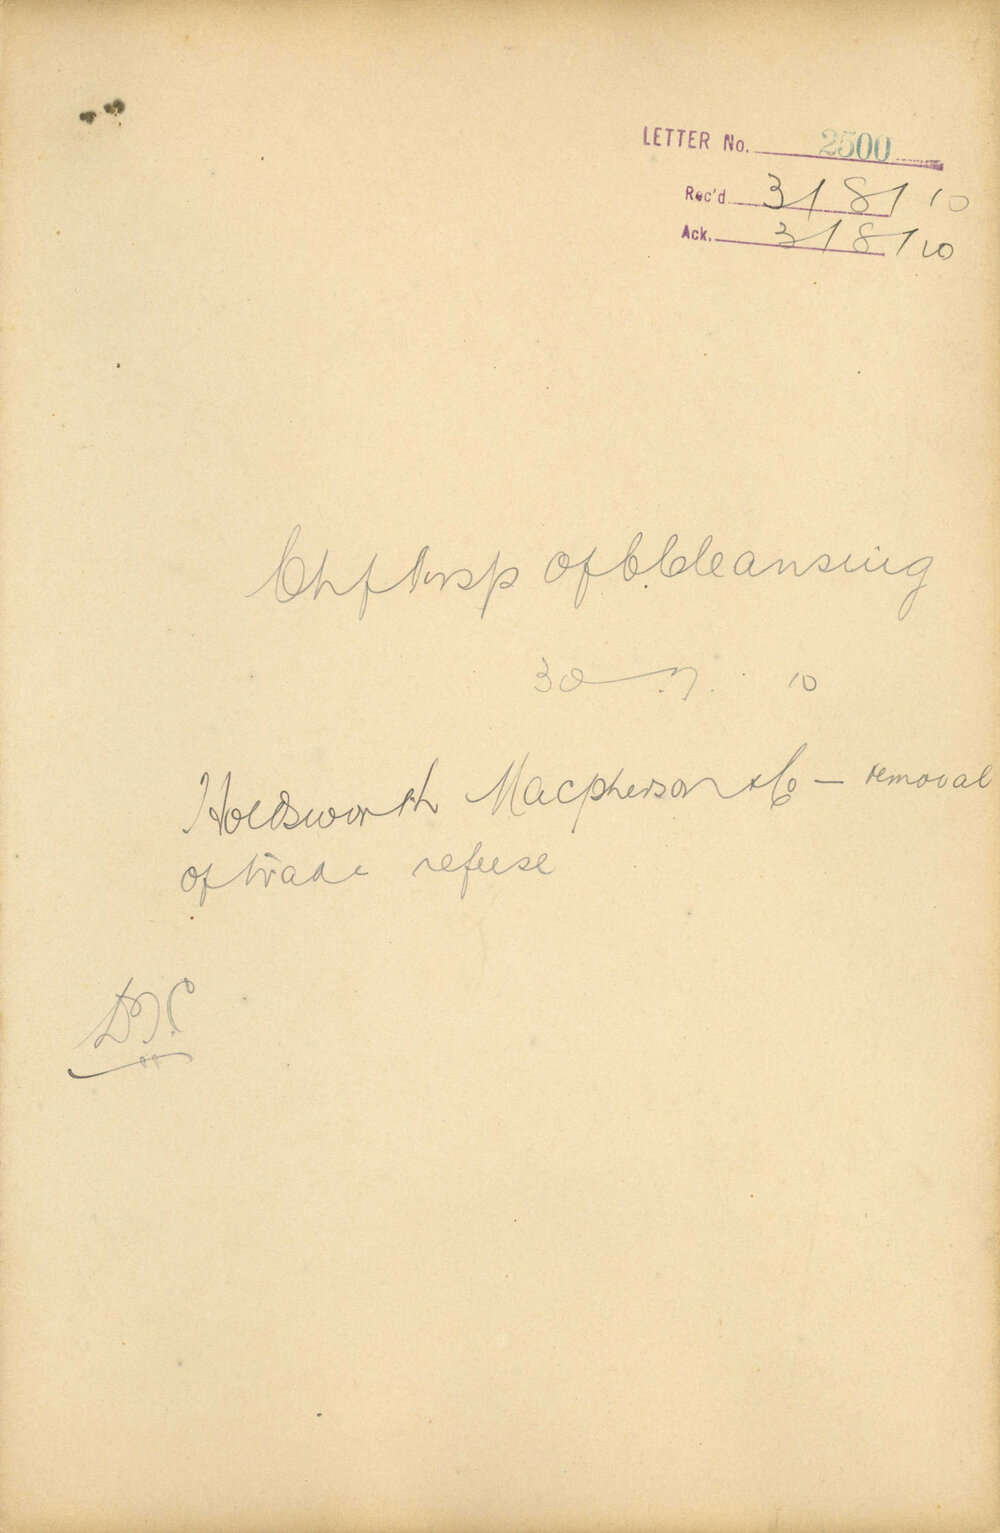 LETTER No. 2500
Rec'd 3/8/10
Ack. 3/8/10
Chf Insp of Cleansing
30 7. 10
Holdsworth Macpherson & Co — removal
of trade refuse